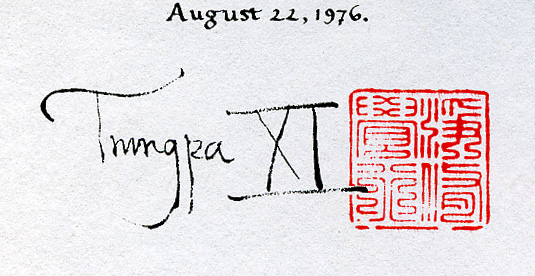 August 22, 1976.
Trungpa XI